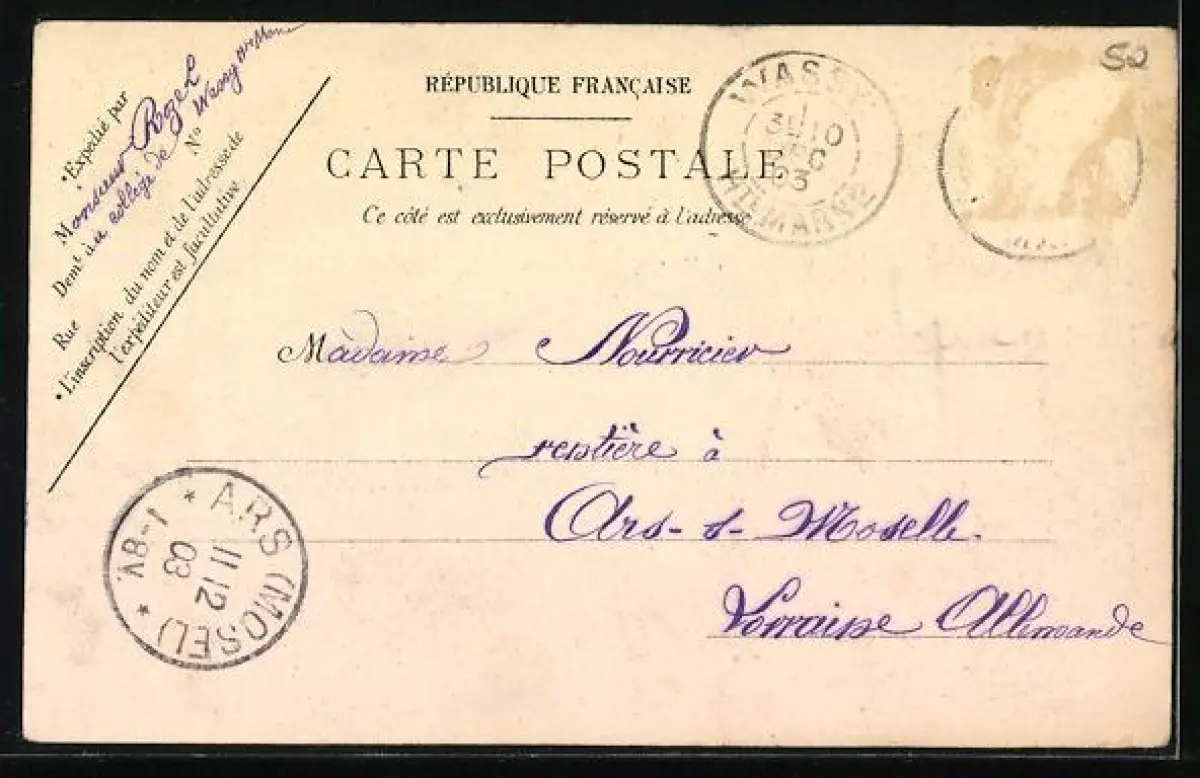 50
RÉPUBLIQUE FRANÇAISE
CARTE POSTALE
Ce côté est exclusivement réservé à l'adresse
WASSY
10
DEC
03
HTE MARNE
Expédié par
Monsieur Rozet
Demt à au collège de Wassy Hte Marne
Rue N°
L'inscription du nom et de l'adresse de
l'expéditeur est facultative
Madame Nourricier
rentière à
Ars-s-Moselle.
Lorraine Allemande
* ARS (MOSEL) *
11 12
03
1-8V.